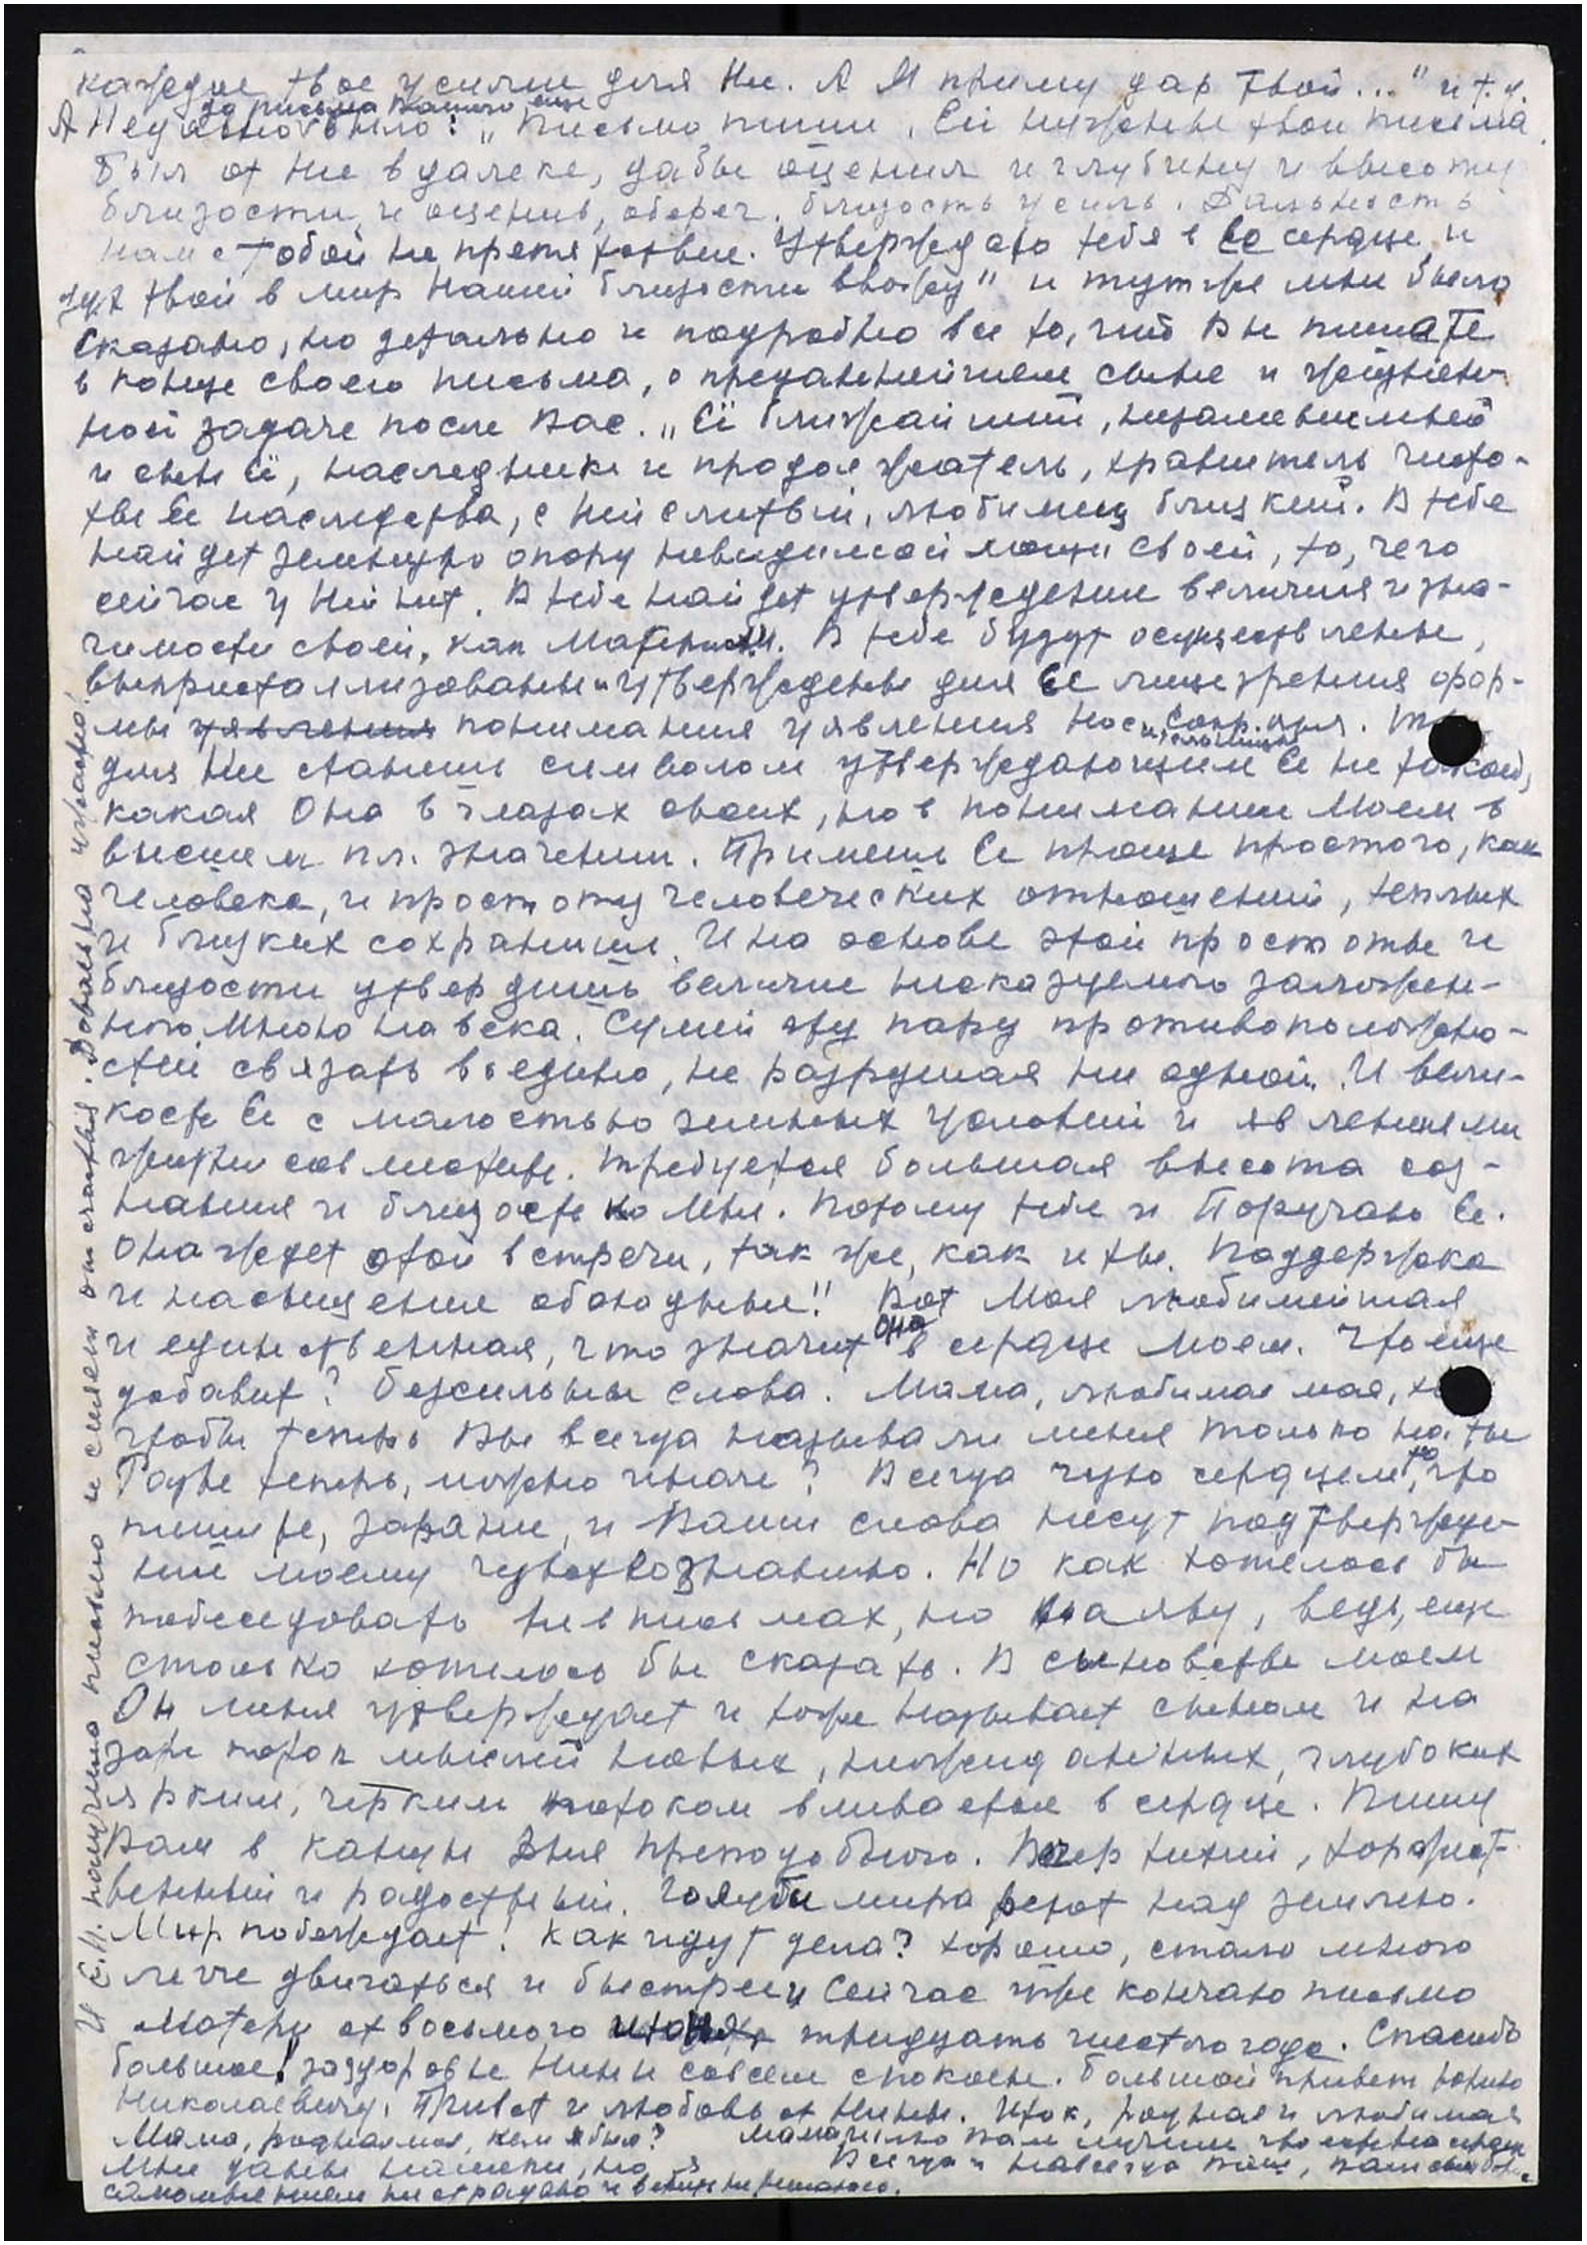 каждое твое усилие для Нее. А Я приму дар твой..." и т.д.
до письма Вашего еще
А Недавно было: "Письмо пиши, Ей нужны твои письма.
Был от Нее вдалеке, дабы оценил и глубину и высоту
близости, и оценив, сберег. близость усиль. Дальность
нам с тобой не препятствие. Утверждаю тебя в Ее сердце, и
дух твой в мир Нашей близости ввожу" и тут же мне было
сказано, но детально и подробно все то, что Вы пишете
в конце своего письма, о преданнейшем сыне и жизнен-
ной задаче после Вас. "Ей ближайший, незаменимый
и сын ей, наследник и продолжатель, хранитель чисто-
ты Ее наследства, с Ней слитый, любимец близкий. В тебе
найдет земную опору невидимой мощи своей, то, чего
сейчас у Ней нет. В тебе найдет утверждение величия и зна-
чимости своей, как Матери. В тебе будут осуществлены,
выкристаллизованы и утверждены для Ее лицезрения фор-
мы явления понимания явления
для Нее станешь символом утверждающим Ее не такой,
какая Она в глазах своих, но в понимании Моем в
высшем пл. значении. Примешь Ее проще простого, как
человека, и простоту человеческих отношений, теплых
и близких сохранишь. И на основе этой простоты и
близости утвердишь величие несказуемого заложен-
ного Мною на века. Сумей эту пару противоположно-
стей связать воедино, не разрушая ни одной. И вели-
кость Ее с малостью земных условий и явлениями
жизни совместить. Требуется большая высота соз-
нания и близость ко Мне. Потому тебе и Поручаю Ее.
Она ждет этой встречи, так же, как и ты. Поддержка
и насыщение обоюдны!! Вот Моя любимейшая
и единственная, что значит она в сердце моем. Что еще
добавит? Безсильны слова. Мама, любимая моя,
чтобы теперь Вы всегда называли меня только на ты
Разве теперь, можно иначе? Всегда чую сердцем то, что
пишите, заранее, и Ваши слова несут подтвержде-
ние моему чувствознанию. Но как хотелось бы
побеседовать не в письмах, но наяву, ведь, еще
столько хотелось бы сказать. В сыновстве моем
Он меня утверждает и тоже называет сыном и на
заре поток мыслей новых, неожиданных, глубоких
ярким, четким потоком вливается в сердце. Пишу
Вам в канун Дня Преподобного. Вечер тихий, торжест-
венный и радостный. Голуби мира реют над землею.
Мир побеждает! Как идут дела? хорошо, стало много
легче двигаться и быстрее и Сейчас же кончаю письмо
Матери от восьмого июня тридцать шестого года. Спасибо
большое! за здоровье Нины совсем спокоен. Большой привет Юрию
Николаевичу. Привет и любовь от Нины. Итак, родная и любимая
Мама, родная моя, кем я был? Мама, шлю Вам лучшее что есть на сердце
Мне даны намеки, но я Всегда и навсегда Ваш, Ваш сын Борис
самомнением не страдаю и
И Е.И. получила письмо и сияет от счастья. Довольна ужасно!